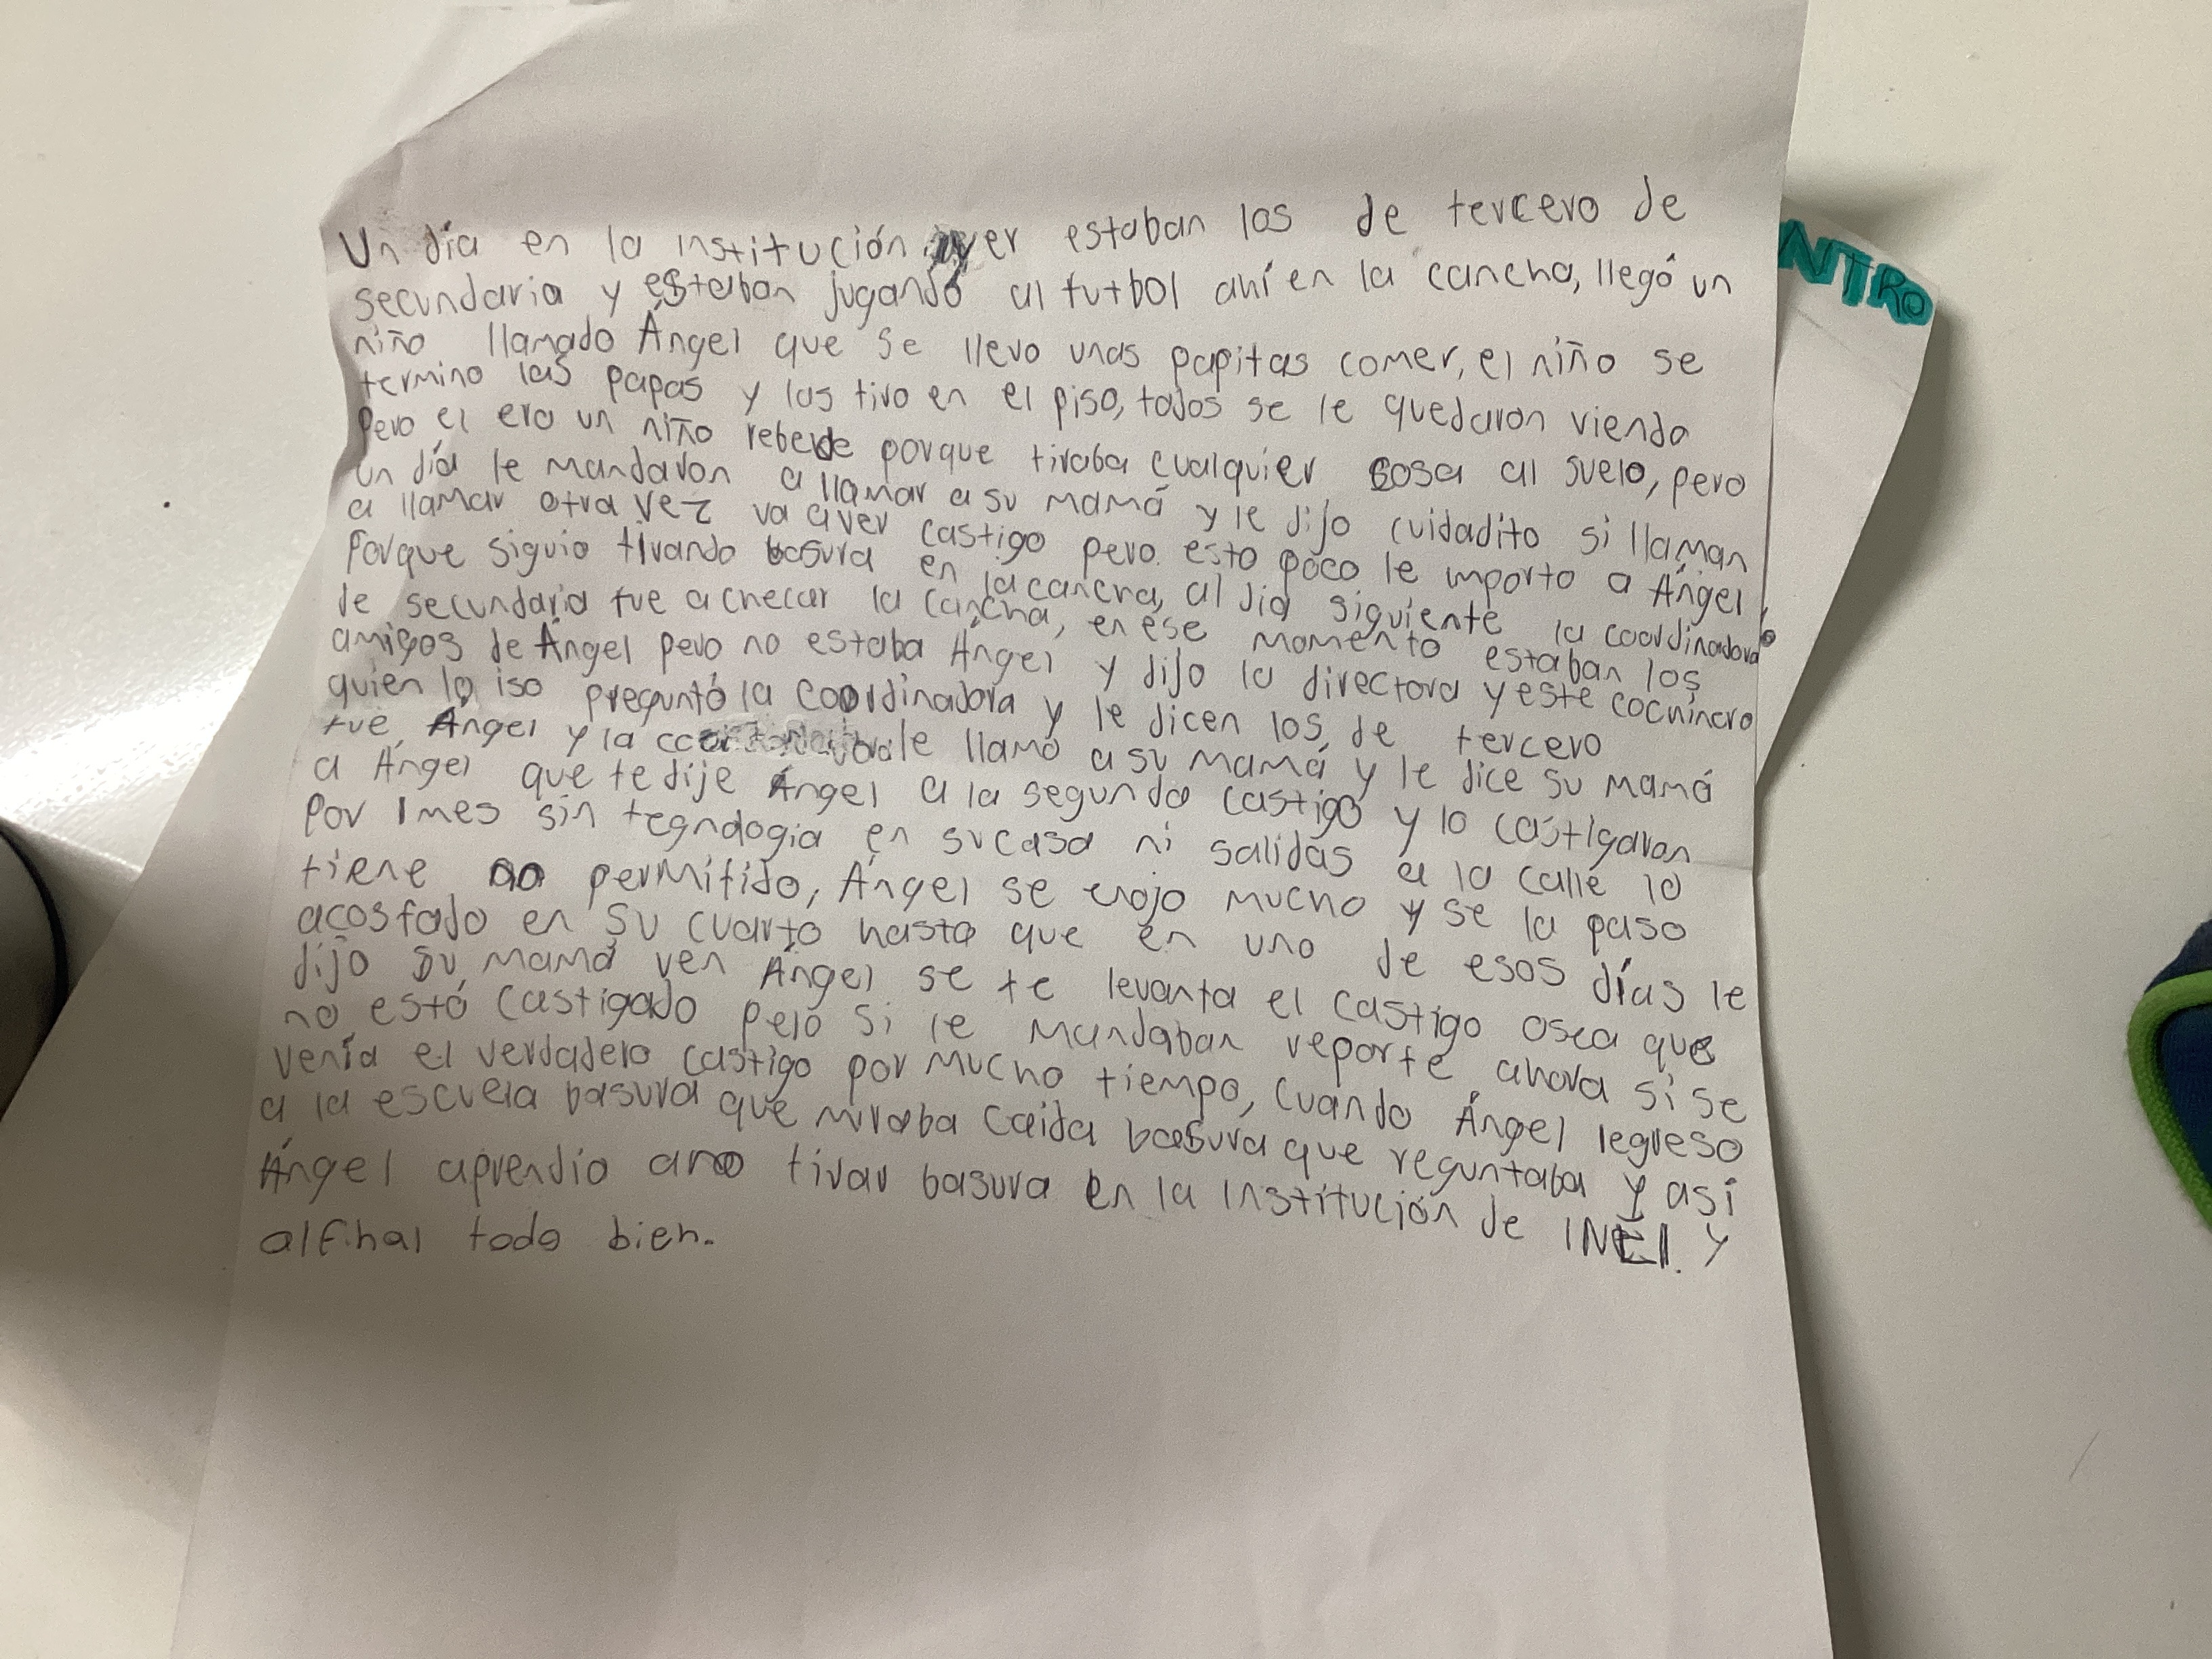 Un día en la institución ayer estaban los de tercero de
secundaria y estaban jugando al futbol ahí en la cancha, llegó un
niño llamado Ángel que se llevo unas papitas comer, el niño se
termino las papas y las tiro en el piso, todos se le quedaron viendo
Pero el era un niño rebelde porque tiraba cualquier cosa al suelo, pero
un día le mandaron a llamar a su mamá y le dijo cuidadito si llaman
a llamar otra vez va aver castigo pero esto poco le importo a Ángel
Porque siguio tirando basura en la cancha, al día siguiente la coordinadora
de secundaria fue a checar la cancha, en ése momento estaban los
amigos de Ángel pero no estaba Ángel y dijo la directora y este cochinero
quien lo iso preguntó la coordinadora y le dicen los de tercero
fue Ángel y la le llamó a su mamá y le dice su mamá
a Ángel que te dije Ángel a la segunda castigo y lo castigaron
Por 1 mes sin tegnologia en su casa ni salidas a la calle lo
tiene no permitido, Ángel se enojo mucho y se la paso
acostado en su cuarto hasta que en uno de esos días le
dijo su mamá ven Ángel se te levanta el castigo osea que
no está castigado pero si le mandaban reporte ahora si se
venía el verdadero castigo por mucho tiempo, cuando Ángel regreso
a la escuela basura que miraba caida basura que reguntaba y así
Ángel aprendio a no tirar basura en la institución de INEI. y
al final todo bien.
NTRO